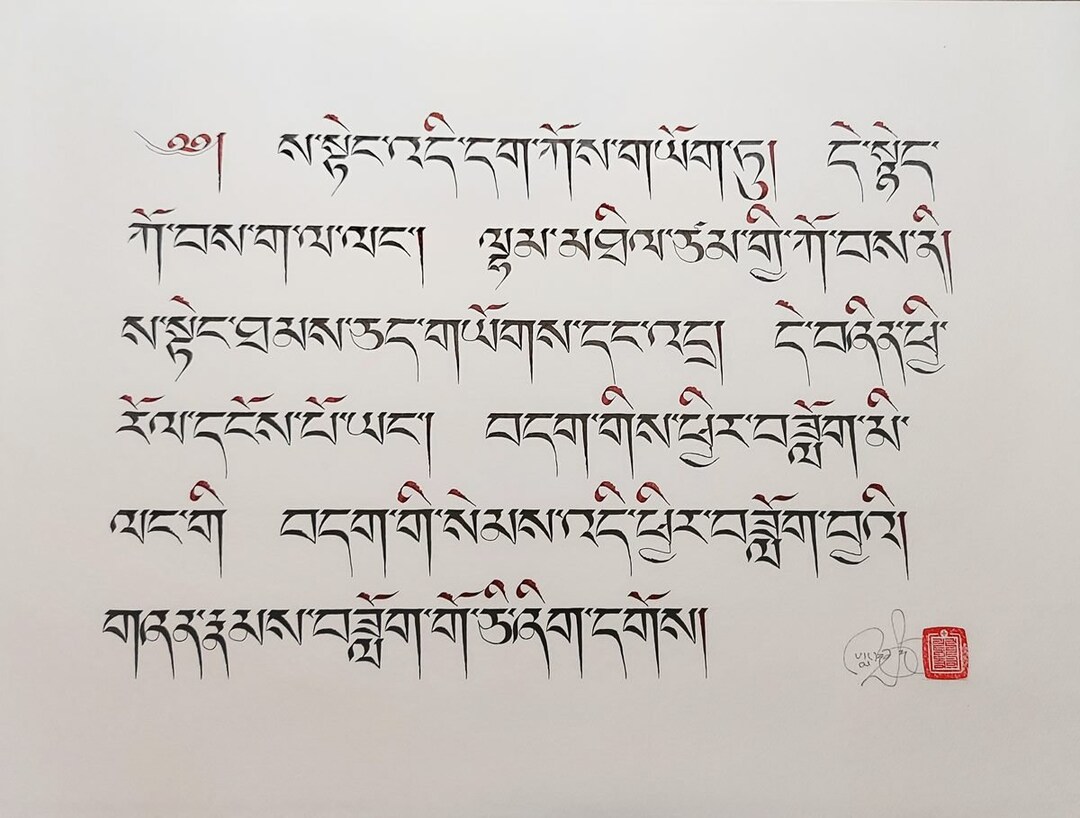 ༄༅། ས་སྟེང་འདི་དག་ཀོས་གཡོག་ཏུ། དེ་སྙེད་
ཀོ་བས་ག་ལ་ལང་། ལྷམ་མཐིལ་ཙམ་གྱི་ཀོ་བས་ནི།
ས་སྟེང་ཐམས་ཅད་གཡོགས་དང་འདྲ། དེ་བཞིན་ཕྱི་
རོལ་དངོས་པོ་ཡང་། བདག་གིས་ཕྱིར་བཟློག་མི་
ལང་གི བདག་གི་སེམས་འདི་ཕྱིར་བཟློག་བྱའི།
གཞན་རྣམས་བཟློག་གོ་ཅི་ཞིག་དགོས།